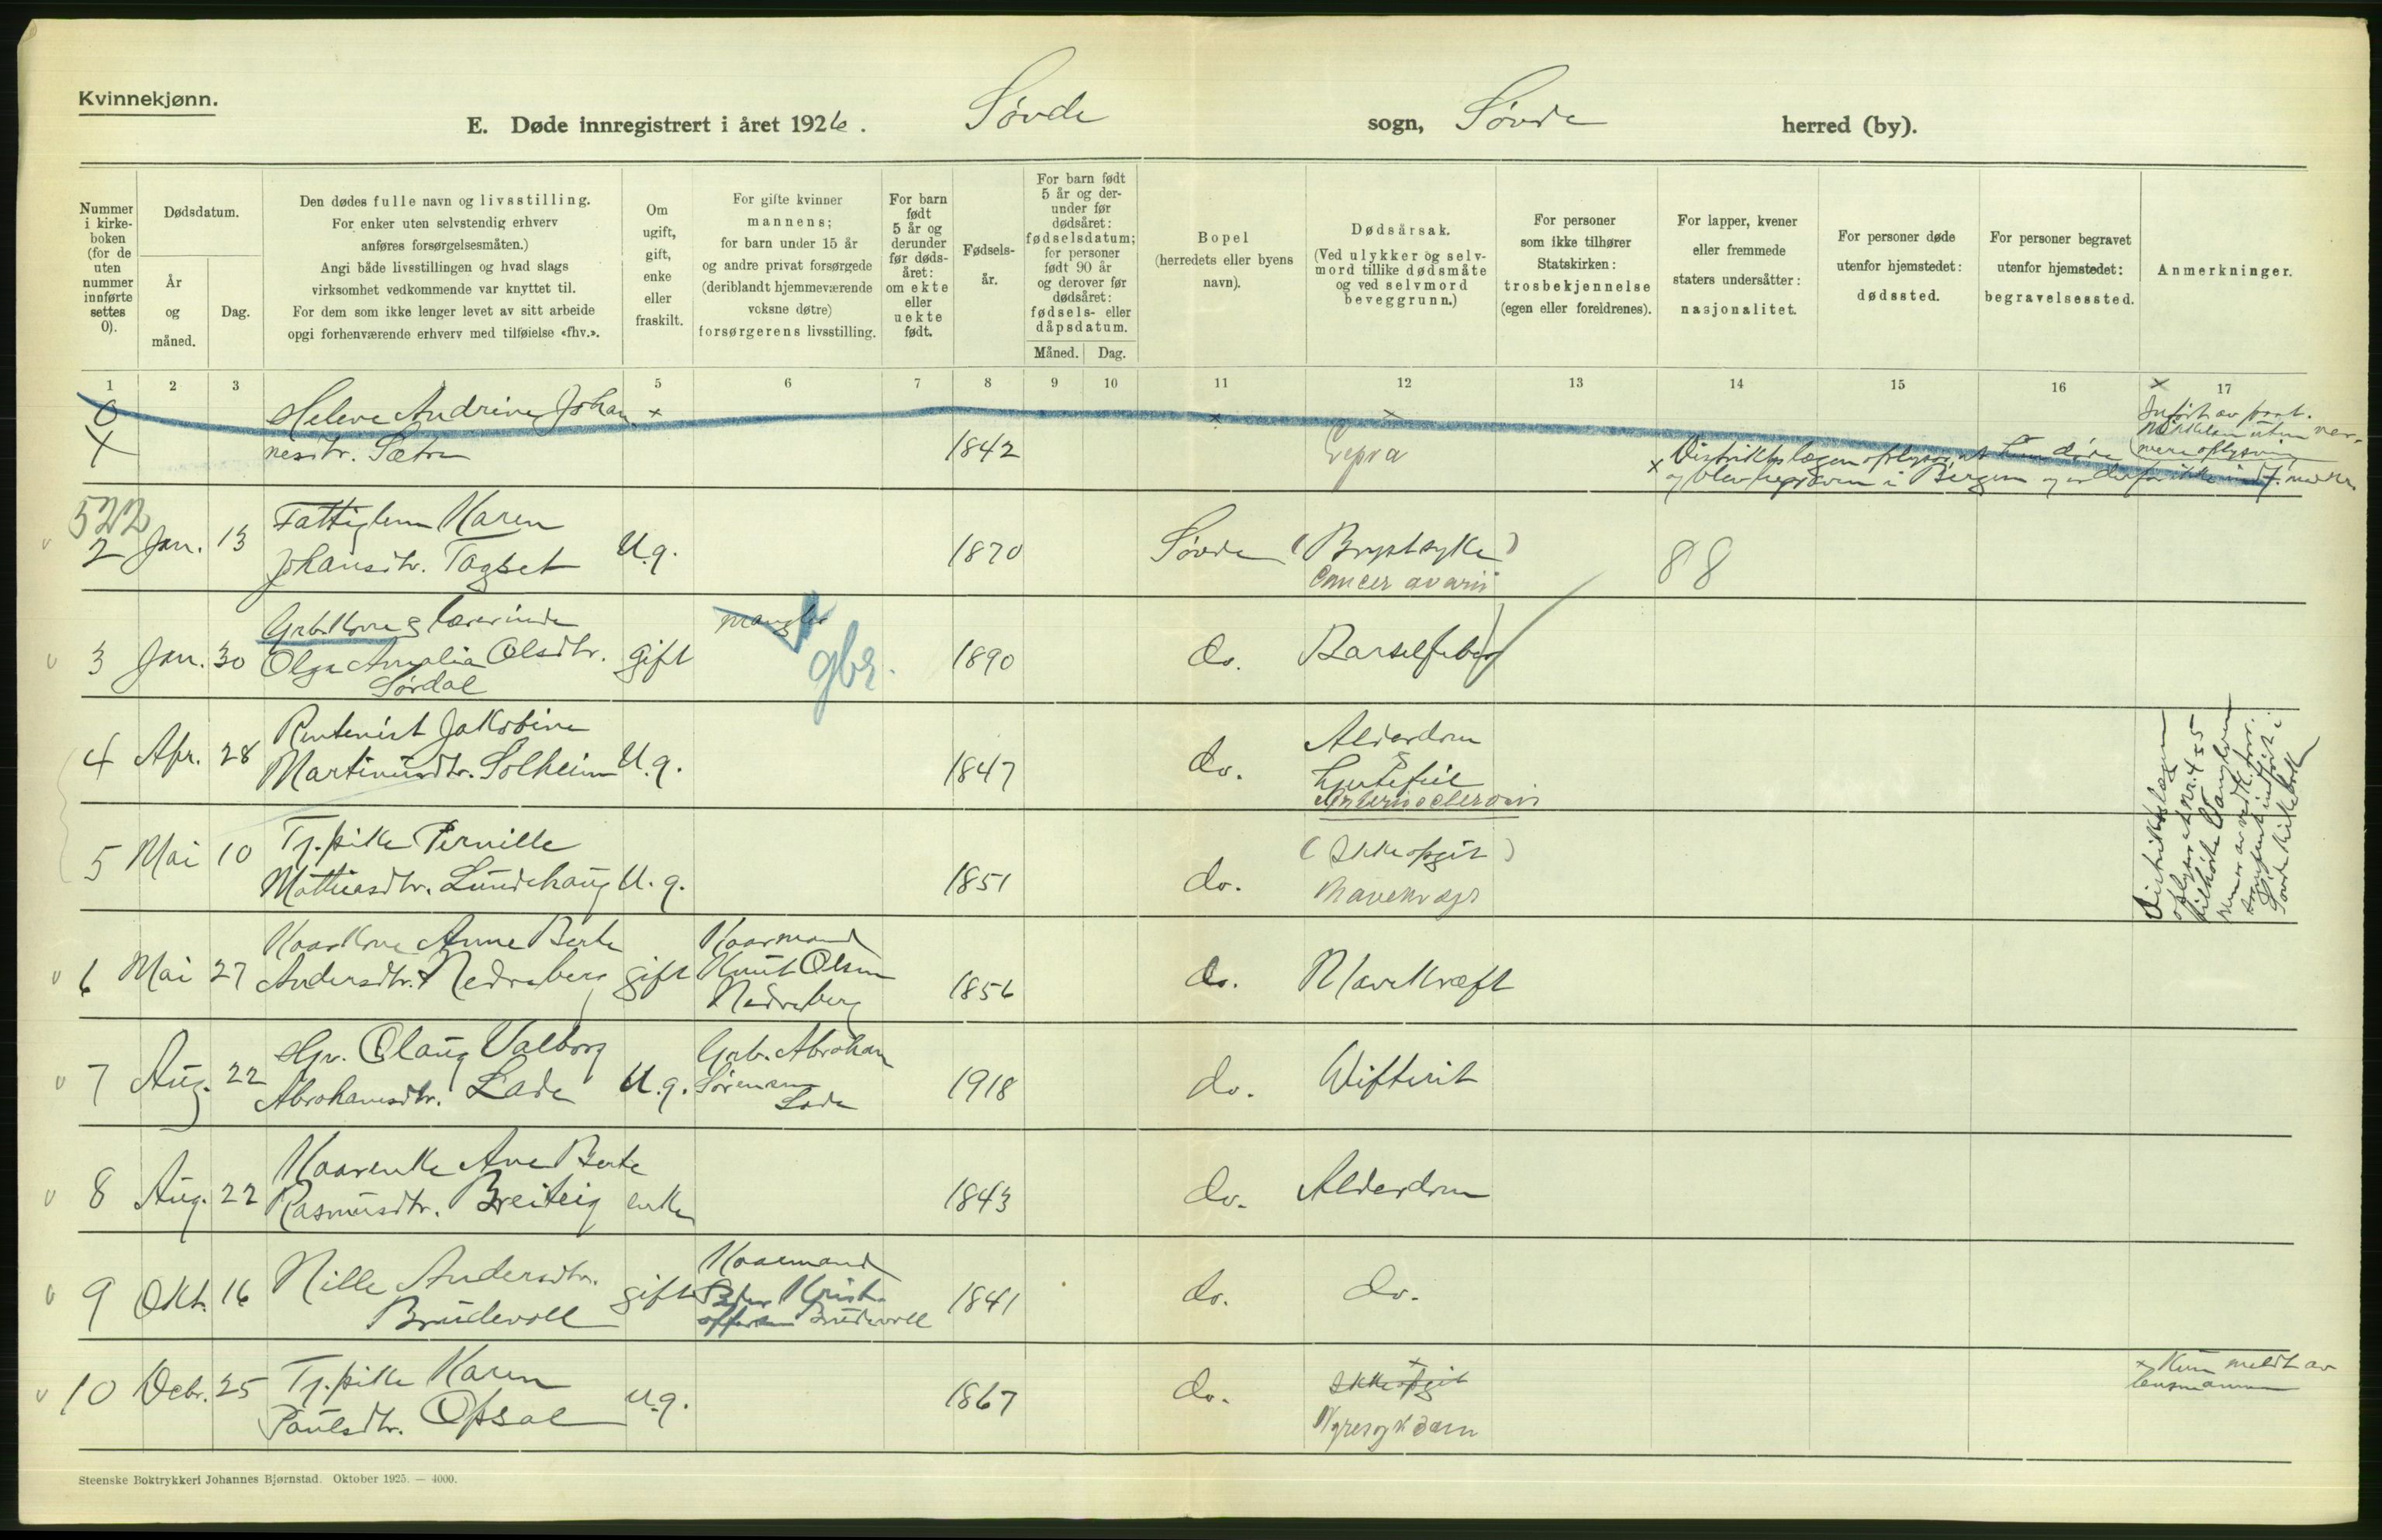 Kvinnekjønn.
E. Døde innregistrert i året 1926. Søvde sogn, Søvde herred (by).
Nummer i kirke-boken (for de uten nummer innførte settes 0).
Dødsdatum.
År og måned.
Dag.
Den dødes fulle navn og livsstilling.
For enker uten selvstendig erhverv
anføres forsørgelsesmåten.)
Angi både livsstillingen og hvad slags
virksomhet vedkommende var knyttet til.
For dem som ikke lenger levet av sitt arbeide
opgi forhenværende erhverv med tilføielse «fhv.».
Om ugift, gift, enke eller fraskilt.
For gifte kvinner
mannens;
for barn under 15 år
og andre privat forsørgede
(deriblandt hjemmeværende
voksne døtre)
forsørgerens livsstilling.
For barn født 5 år og derunder før døds-året: om ekte eller uekte født.
Fødsels-år.
For barn født 5 år og der-under før dødsåret: fødselsdatum; for personer født 90 år og derover før dødsåret: fødsels- eller dåpsdatum.
Måned. Dag.
Bopel
(herredets eller byens
navn).
Dødsårsak.
(Ved ulykker og selv-
mord tillike dødsmåte
og ved selvmord
beveggrunn.)
For personer
som ikke tilhører
Statskirken:
trosbekjennelse
(egen eller foreldrenes).
For lapper, kvener
eller fremmede
staters undersåtter:
nasjonalitet.
For personer døde
utenfor hjemstedet:
dødssted.
For personer begravet
utenfor hjemstedet:
begravelsessted.
Anmerkninger.
1 2 3 5 6 7 8 9 10 11 12 13 14 15 16 17
0 Helene Andrine Johan
nesdtr. Sætre 1842 Lepra
x Distriktslægen oplyser, at hun døde
og blev begraven i Bergen
522
2 Jan. 13 Fattiglem Karen
Johansdtr. Tagset U.g. 1870 Søvde (Brystsyke)
Cancer ovarii
88
3 Jan. 30 Grb.kone & lærerinde
Olga Amalia Olsdtr.
Sørdal gift mangler gbr. 1890 do. Barselfeber
4 Apr. 28 Rentenist Jakobine
Martinusdtr. Solheim U.g. 1847 do. Alderdom
&
Hjertefeil
5 Mai 10 Tj.pike Pernille
Mathiasdtr. Lundehaug U.g. 1851 do. (Ikke opgit)
6 Mai 27 Kaarkone Anne Berte
Andersdtr. Nedreberg gift Kaarmand
Knut Olsen
Nedreberg 1856 do. Mavekræft
7 Aug. 22 Olaug Valborg
Abrahamsdtr. Lade U.g. Grb. Abraham
Sørensen
Lade 1918 do. Difterit
8 Aug. 22 Kaarenke Ane Berte
Rasmusdtr. Breiteig enke 1843 do. Alderdom
9 Okt. 16 Nille Andersdtr.
Brudevoll gift Kaarmand
Peder Krist-
offersen Brudevoll 1841 do. do.
10 Debr. 25 Tj.pike Karen
Paulsdtr. Opsal u.g. 1867 do. Ikke opgit
Nyresykdom
x Kun meldt av
lensmannen
Steenske Boktrykkeri Johannes Bjørnstad. Oktober 1925. — 4000.